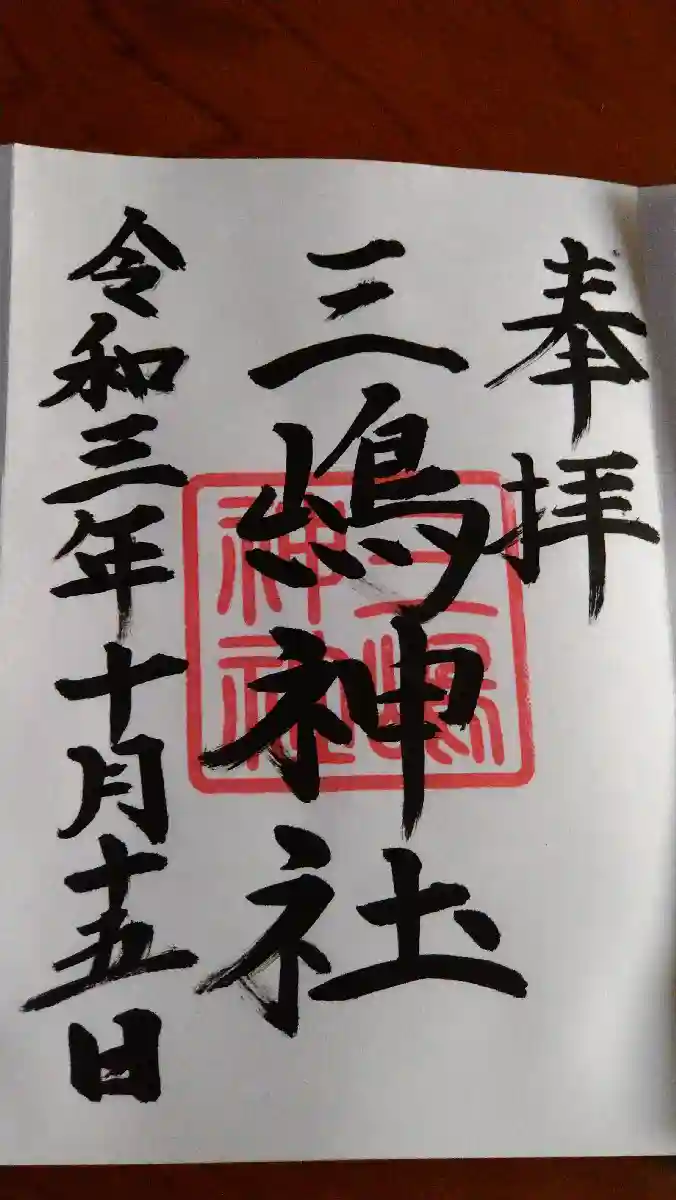 奉拝
三嶋神社
三嶋神社
令和三年十月十五日